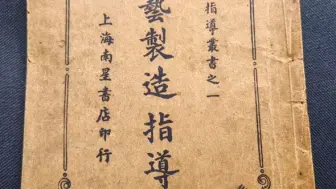 指導叢書之一
藝製造指導
上海南星書店印行